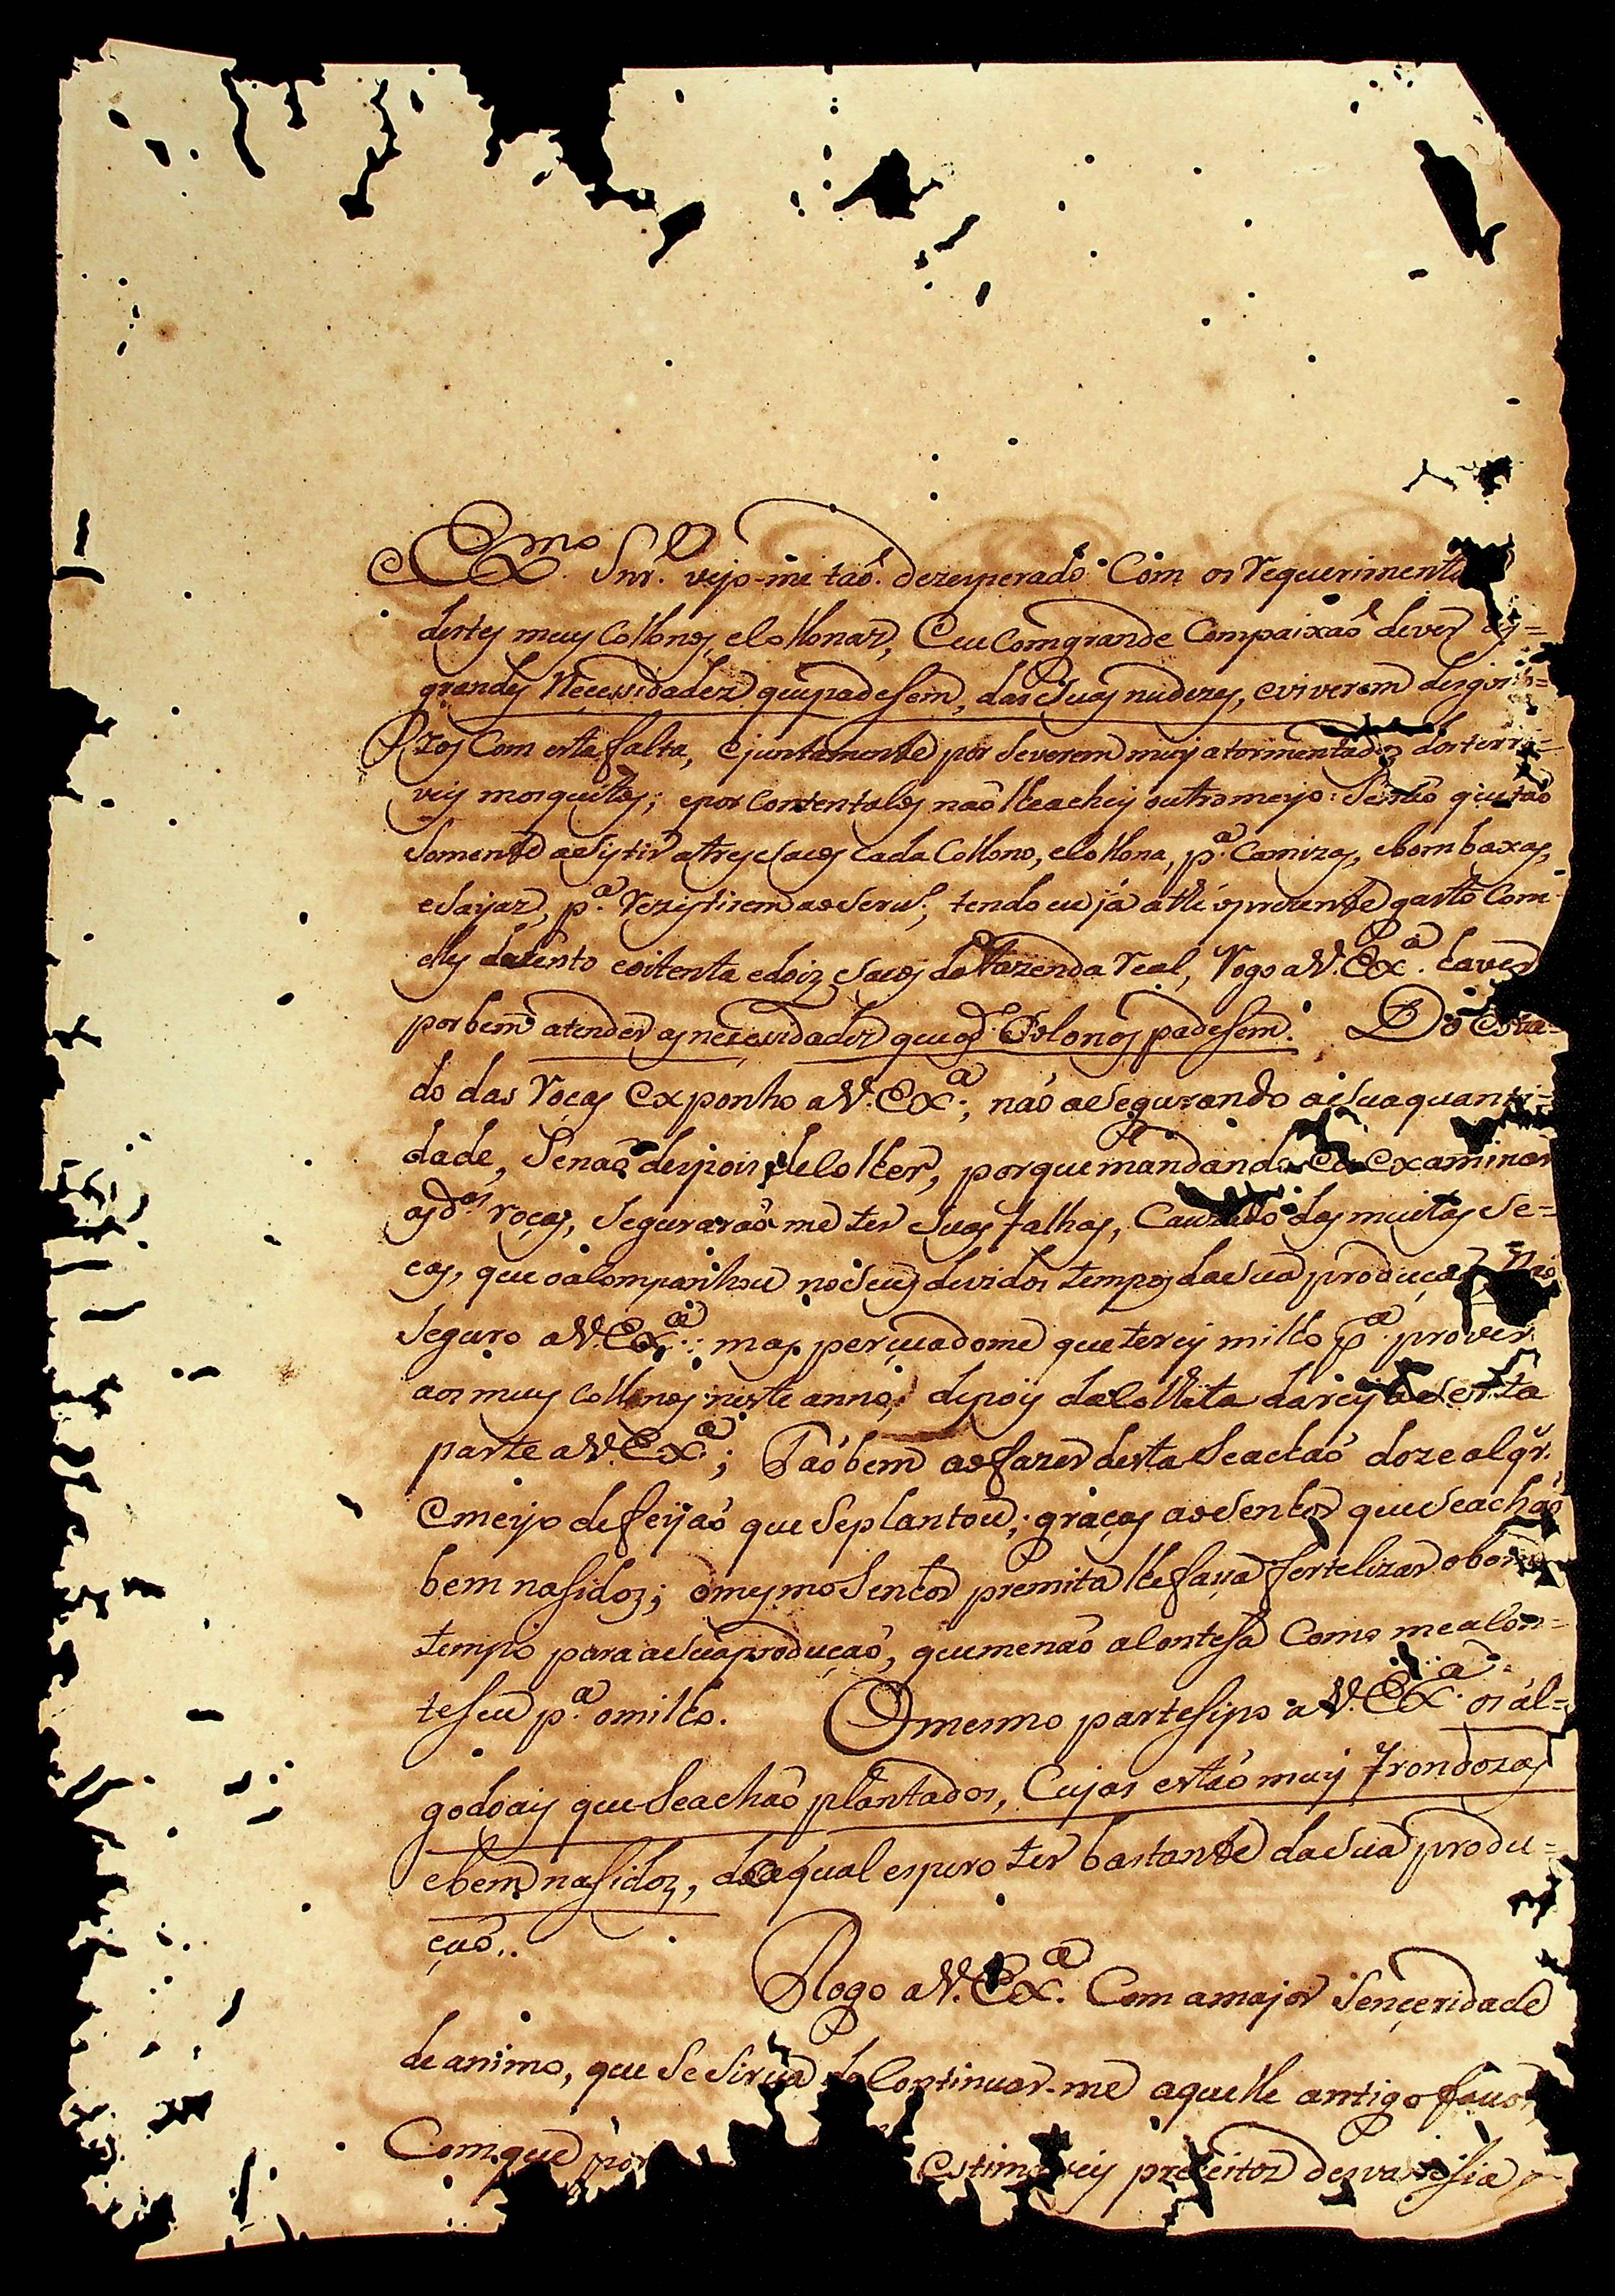 Exmo. Snr. vejo-me taõ dezesperado Com os requerimento
destes meus Collonos, e collonas, e eu Com grande Compaixaõ de ver as=
grandes necessidadez que padesem, das suas nudezes, e viverem desgos=
zos Com esta falta, e juntamente por se verem muy atormentados dos terri=
veis mosquitos; e por Contentalos naõ lhe achey outro meyo: Senaõ que taõ
somente asistir a tres sacos cada Collono, e collona, pª. Camizas, e bombaxas,
e sayaz, pª. rezistirem ao serv.; tendo eu já athé o prezente gasto Com
elles duzento e oitenta e doiz sacos da Fazenda real, rogo a V. Exª. haver
por bem atender as necessidadez que os ds. Colonos padesem. Do esta=
do das roças exponho a V. Exª., naõ asegurando a sua quanti=
dade, Senaõ despois de colher, porque mandando eu examinar
as ds. roças, seguraraõ-me ter suas falhas, Cauzado das muitas se=
cas, que o acompanhou no seus devidos tempos da sua produçaõ. Naõ
seguro a V. Exª.: mas persuadome que terey milho pª. prover
aos meus collonos neste anno, depois da colheita darey a serta
parte a V. Exª.; Taõ bem ao fazer desta se achaõ doze alqr.
e meyo de feijaõ que se plantou; graças ao Senhor que se achaõ
bem nasidoz; o mesmo Senhor premita lhe faça fertelizar o bom
tempo para a sua produçaõ, que me naõ acontesa Como me acon=
teseu pª. o milho. O mesmo partesipo a V. Exª. os al=
godoais que se achaõ plantados, Cujos estaõ muy frondozos
e bem nasidoz, do qual espero ter bastante da sua produ=
çaõ..
Rogo a V. Exª. Com a major senseridade
de animo, que se sirva de Continuar-me aquelle antigo favor,
Com que por estimarey preceitoz